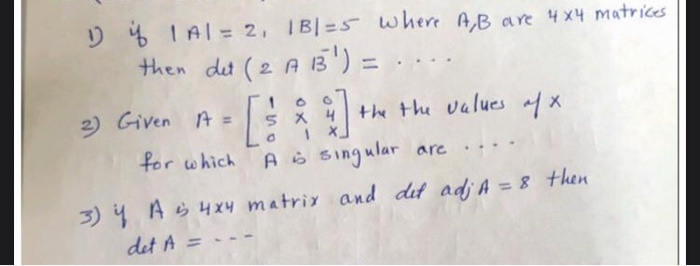 1) if |A| = 2, |B| = 5 where A,B are 4x4 matrices
then det (2 A B⁻¹) = ....
2) Given A = [1 0 0; 5 x 4; 0 1 x] the the values of x
for which A is singular are ....
3) if A is 4x4 matrix and det adj A = 8 then
det A = ---